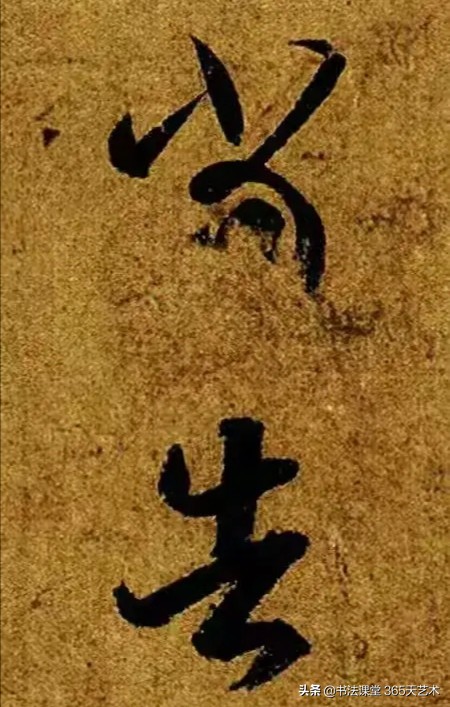 尚
头条 @书法课堂 365天艺术